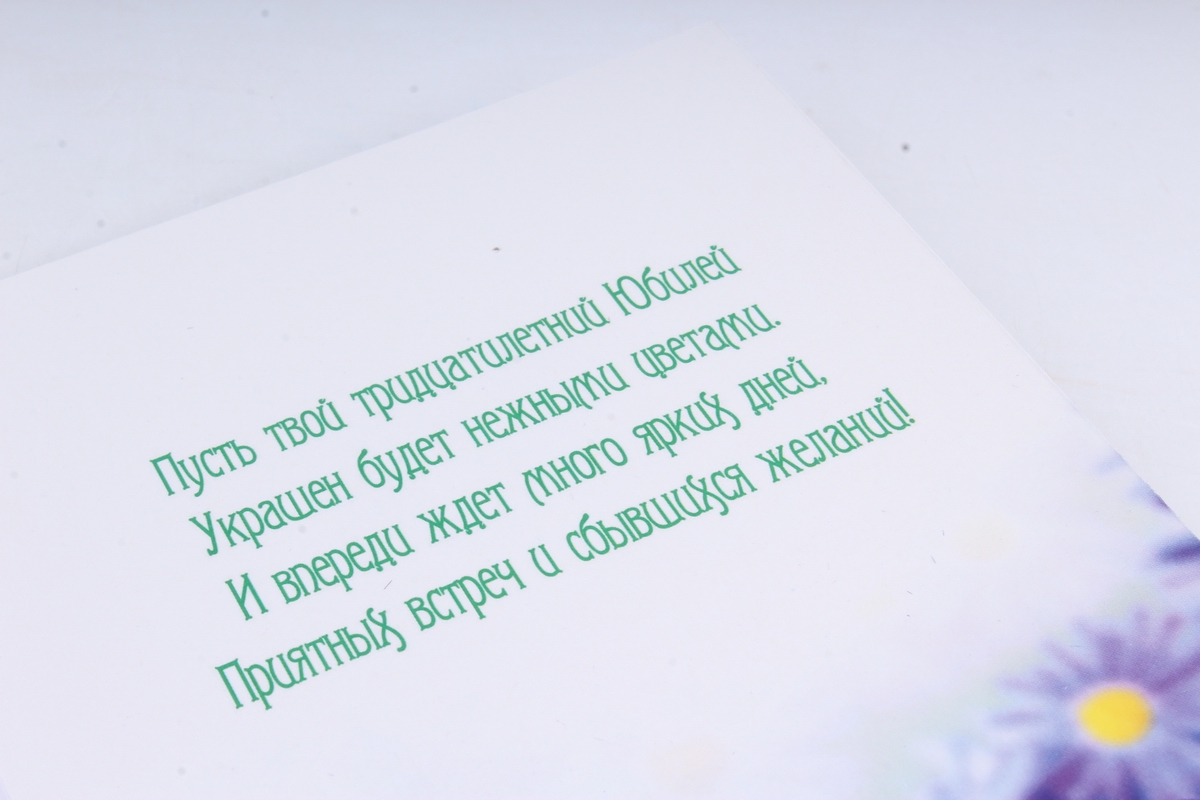 Пусть твой тридцатилетний Юбилей
Украшен будет нежными цветами.
И впереди ждет много ярких дней,
Приятных встреч и сбывшихся желаний!